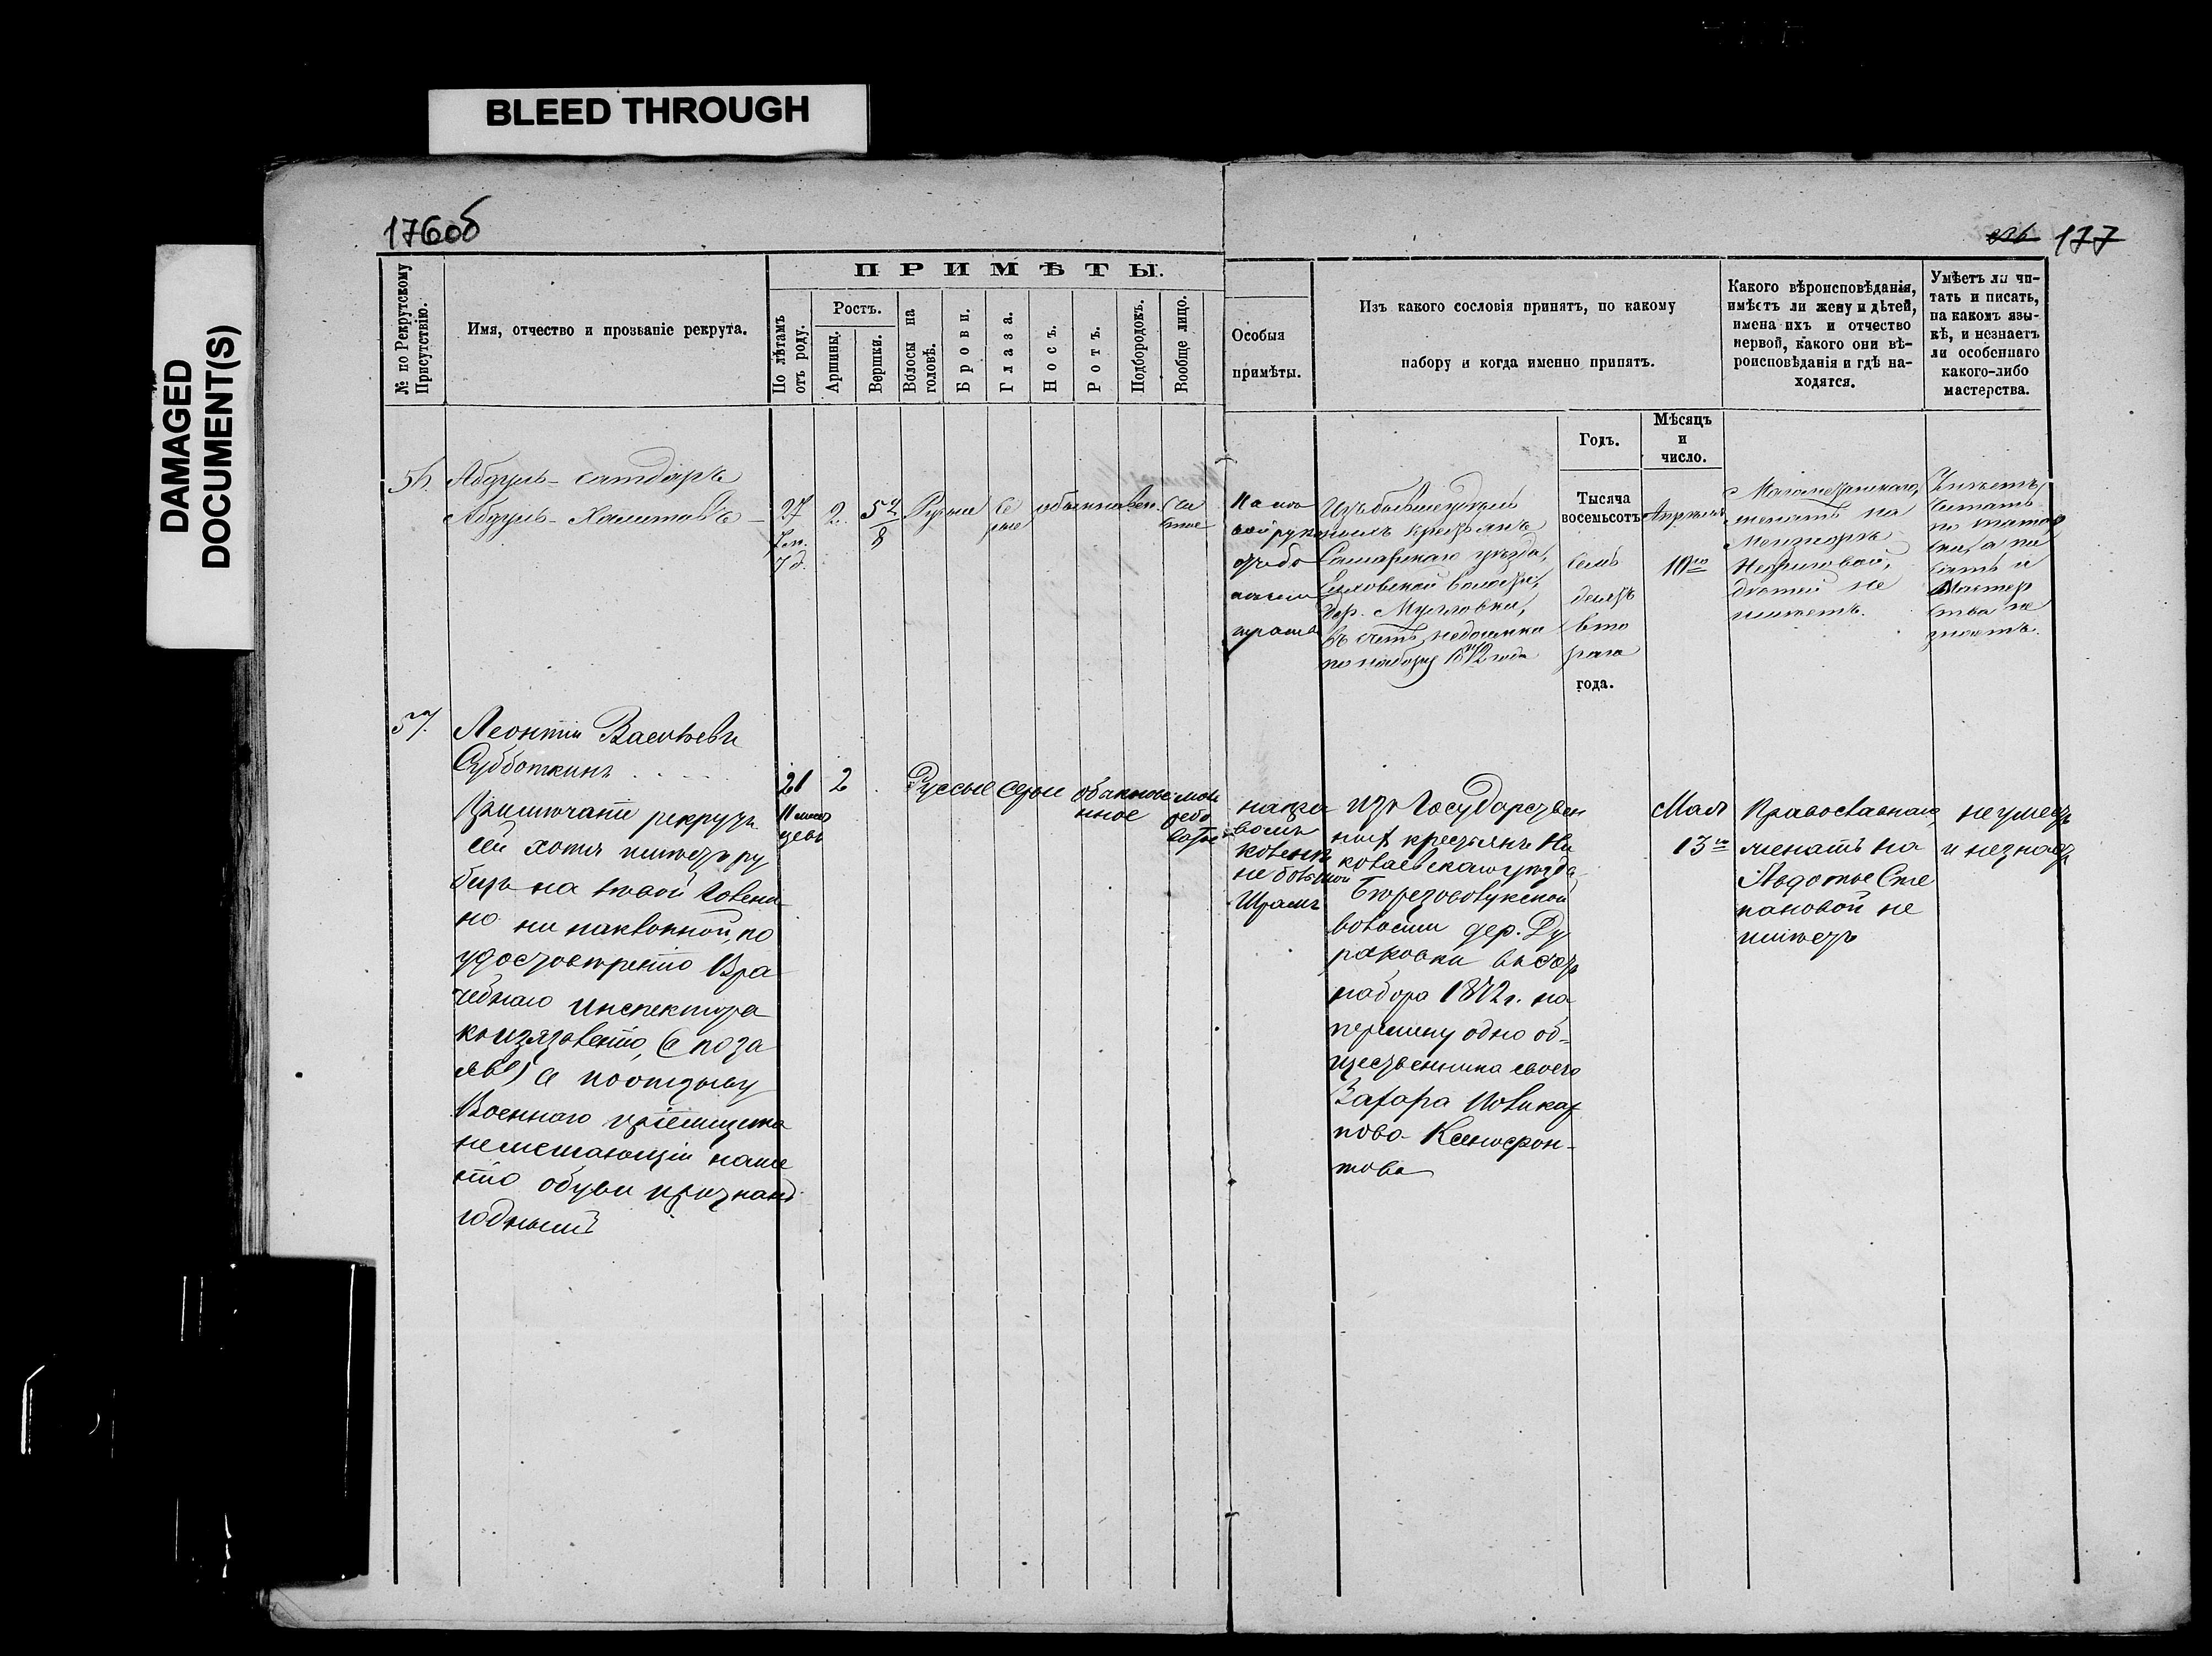 BLEED THROUGH
DAMAGED
DOCUMENT(S)
176об
177
ПРИМѢТЫ.
№ по Рекрутскому
Присутствію.
Имя, отчество и прозваніе рекрута.
По лѣтамъ
отъ роду.
Ростъ.
Аршины.
Вершки.
Волосы на
головѣ.
Брови.
Глаза.
Носъ.
Ротъ.
Подбородокъ.
Вообще лицо.
Особыя
примѣты.
Изъ какого сословія принятъ, по какому
набору и когда именно принятъ.
Какого вѣроисповѣданія,
имѣетъ ли жену и дѣтей,
имена ихъ и отчество
первой, какого они вѣ-
роисповѣданія и гдѣ на-
ходятся.
Умѣетъ ли чи-
тать и писать,
на какомъ язы-
кѣ, и незнаетъ
ли особеннаго
какого-либо
мастерства.
Годъ.
Мѣсяцъ
и
число.
56.
Абдулъ-
Абдулъ-
27
7 м.
7 д.
2.
8
Русые
Се
рые
обыкновен.
На лѣ
вой рукѣ
Изъ бывшихъ
крестьянъ
Самарскаго уѣзда,
волости,
дер. Мулловки,
въ счетъ недоимки
по набору 1872 года
Тысяча
восемьсотъ
семь
десятъ
вто
раго
года.
Апрѣля
10го
Магометанскаго,
женатъ на
дѣтей не
имѣетъ.
Умѣетъ
читать
по татар
ски, а пи
сать и
мастер
ства не
знаетъ.
57.
Леонтій Васильевъ
Субботкинъ
Примѣчаніе рекрутъ
сей хотя имѣетъ ру
бецъ на лѣвой голени
но ни наклонной, по
удостовѣренію Вра
чебнаго инспектора
къ изязвленію, (е поза
лв) а по отзыву
Военнаго пріемщика
не мешающій ноше
нію обуви признанъ
годнымъ
21
11 меся
цевъ
2
Русые
серые
обыкнове
нное
налѣ
вомъ
коленѣ
небольшой
Шрамъ
изъ Государствен
ныхъ крестьянъ Ни
колаевскаго уѣзда
волости дер. Ду
раковки въ счетъ
набора 1872 г. на
перемену одно об=
щественника своего
Захара Поликар
пова Ксенофон-
това
Мая
13го
Православнаго,
женатъ на
Авдотье Сте
пановой не
имѣетъ
не умеетъ
и незнаетъ